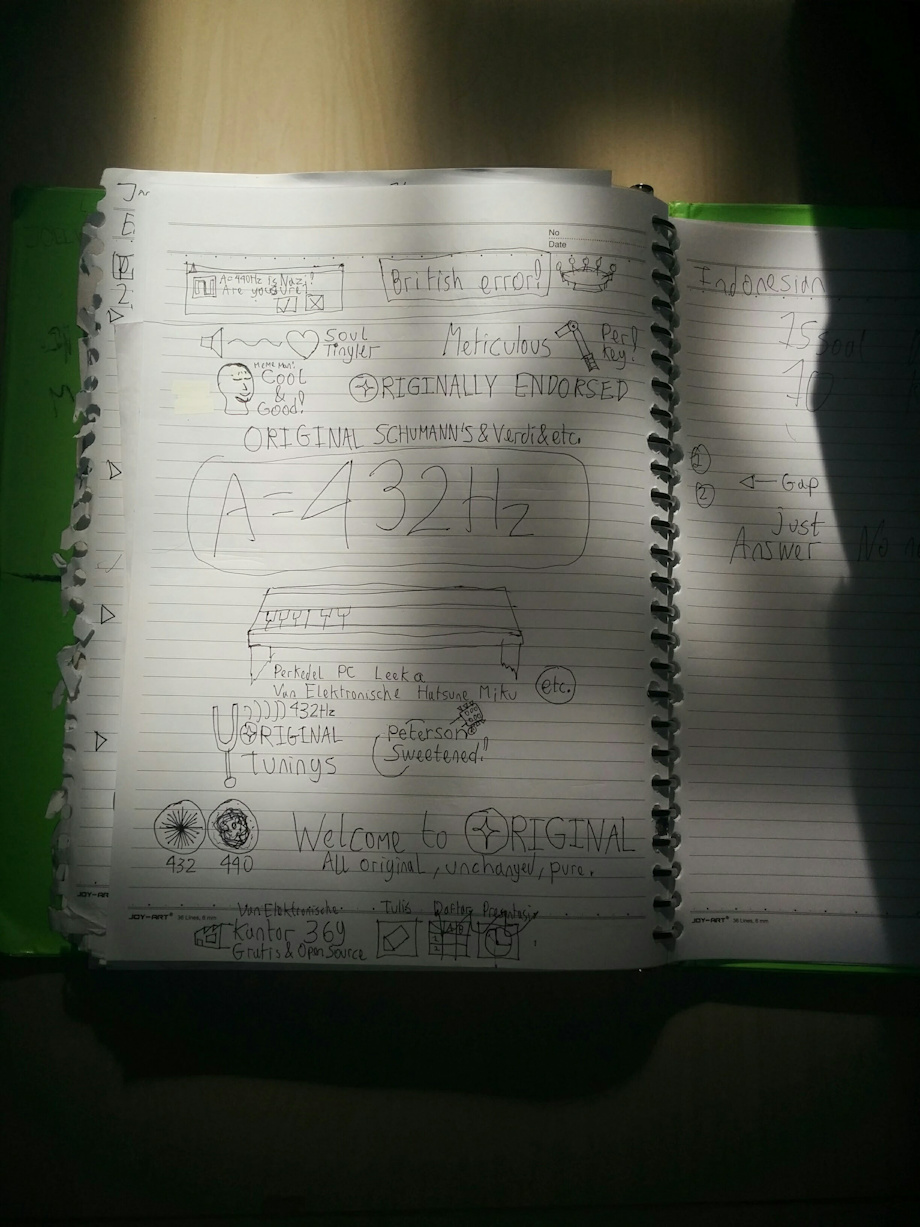 No
Date
A=440Hz Is Nazi!
Are you sure?
British error!
Soul
Tingler
Meticulous
Per!
key!
Meme Man:
Cool
&
Good!
ORIGINALLY ENDORSED
ORIGINAL SCHUMANN'S & Verdi & etc.
A=432Hz
Perkedel PC Leeka
Van Elektronische Hatsune Miku
etc.
432Hz
ORIGINAL
Tunings
Peterson
Sweetened!
432
440
Welcome to ORIGINAL
All original, unchanged, pure.
JOY-ART® 36 Lines, 8 mm
Van Elektronische
Kantor 369
Gratis & Open Source
Tulis
Daftar
Presentasi
Indonesian
75 soul
10
1
2
Gap
Just
Answer No
JOY-ART® 36 Lines, 8 mm
JOY-AR